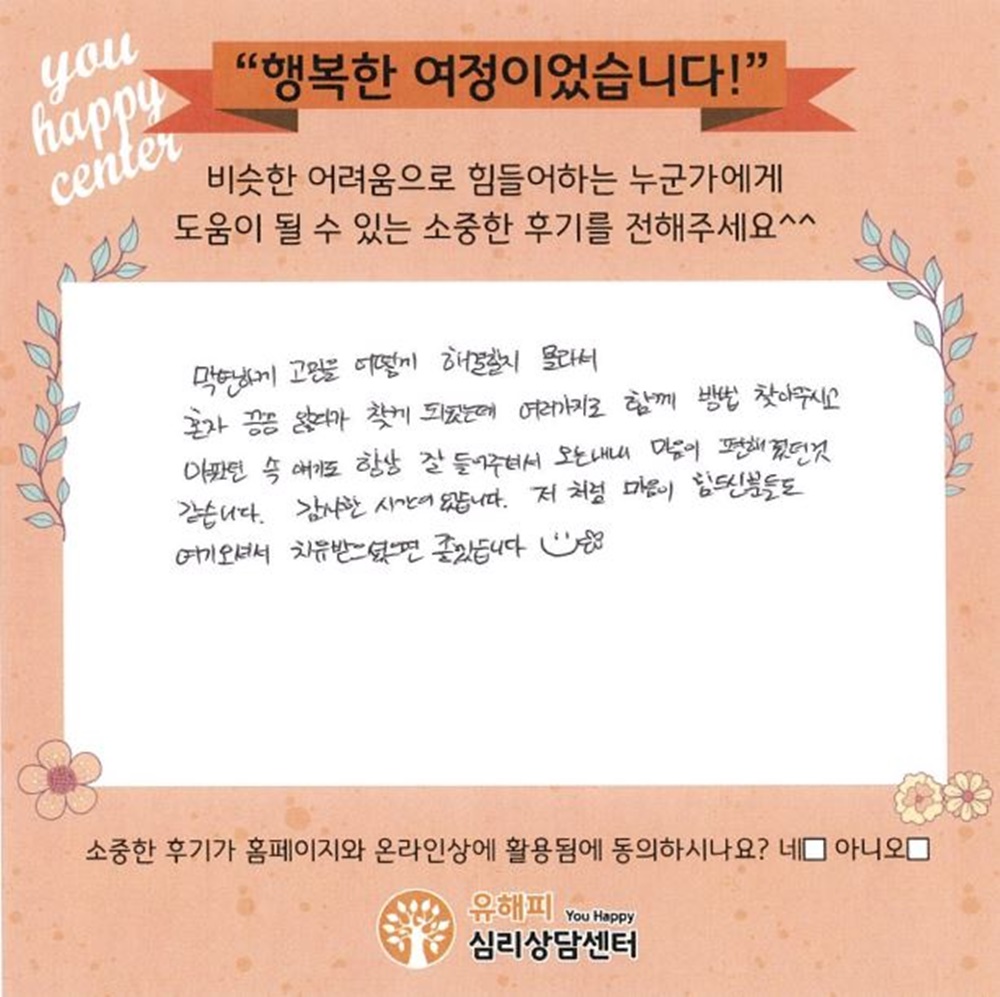 you
happy
center
“행복한 여정이었습니다!”
비슷한 어려움으로 힘들어하는 누군가에게
도움이 될 수 있는 소중한 후기를 전해주세요^^
막연하게 고민을 어떻게 해결할지 몰라서
혼자 끙끙 앓다가 찾게 되었는데 여러가지로 함께 방법 찾아주시고
아팠던 속 얘기도 항상 잘 들어주셔서 오는내내 마음이 편해졌던것
같습니다. 감사한 시간이였습니다. 저 처럼 마음이 힘드신분들도
여기오셔서 치유받으셨으면 좋겠습니다
소중한 후기가 홈페이지와 온라인상에 활용됨에 동의하시나요? 네□ 아니오□
유해피 You Happy
심리상담센터